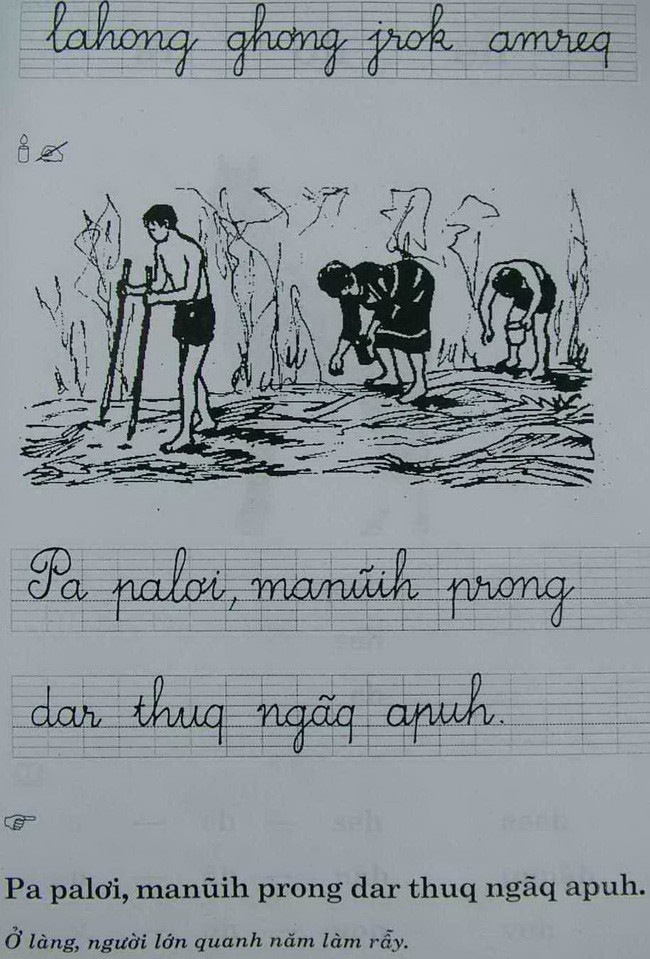 lahong ghơng jrok amreq
Pa palơi, manŭih prong
dar thuq ngãq apuh.
Pa palơi, manũih prong dar thuq ngãq apuh.
Ở làng, người lớn quanh năm làm rẫy.